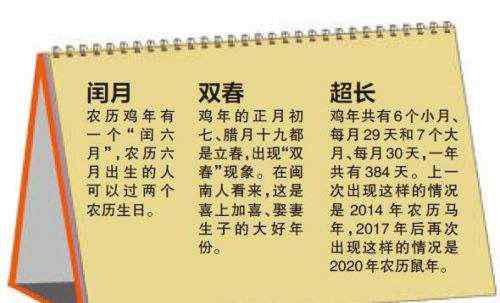 闰月
农历鸡年有
一个“闰六
月”,农历六
月出生的人
可以过两个
农历生日。
双春
鸡年的正月初
七、腊月十九都
是立春,出现“双
春”现象。在闽
南人看来,这是
喜上加喜、娶妻
生子的大好年
份。
超长
鸡年共有6个小月、
每月29天和7个大
月、每月30天,一年
共有384天。上一
次出现这样的情况
是2014年农历马
年,2017年后再次
出现这样的情况是
2020年农历鼠年。